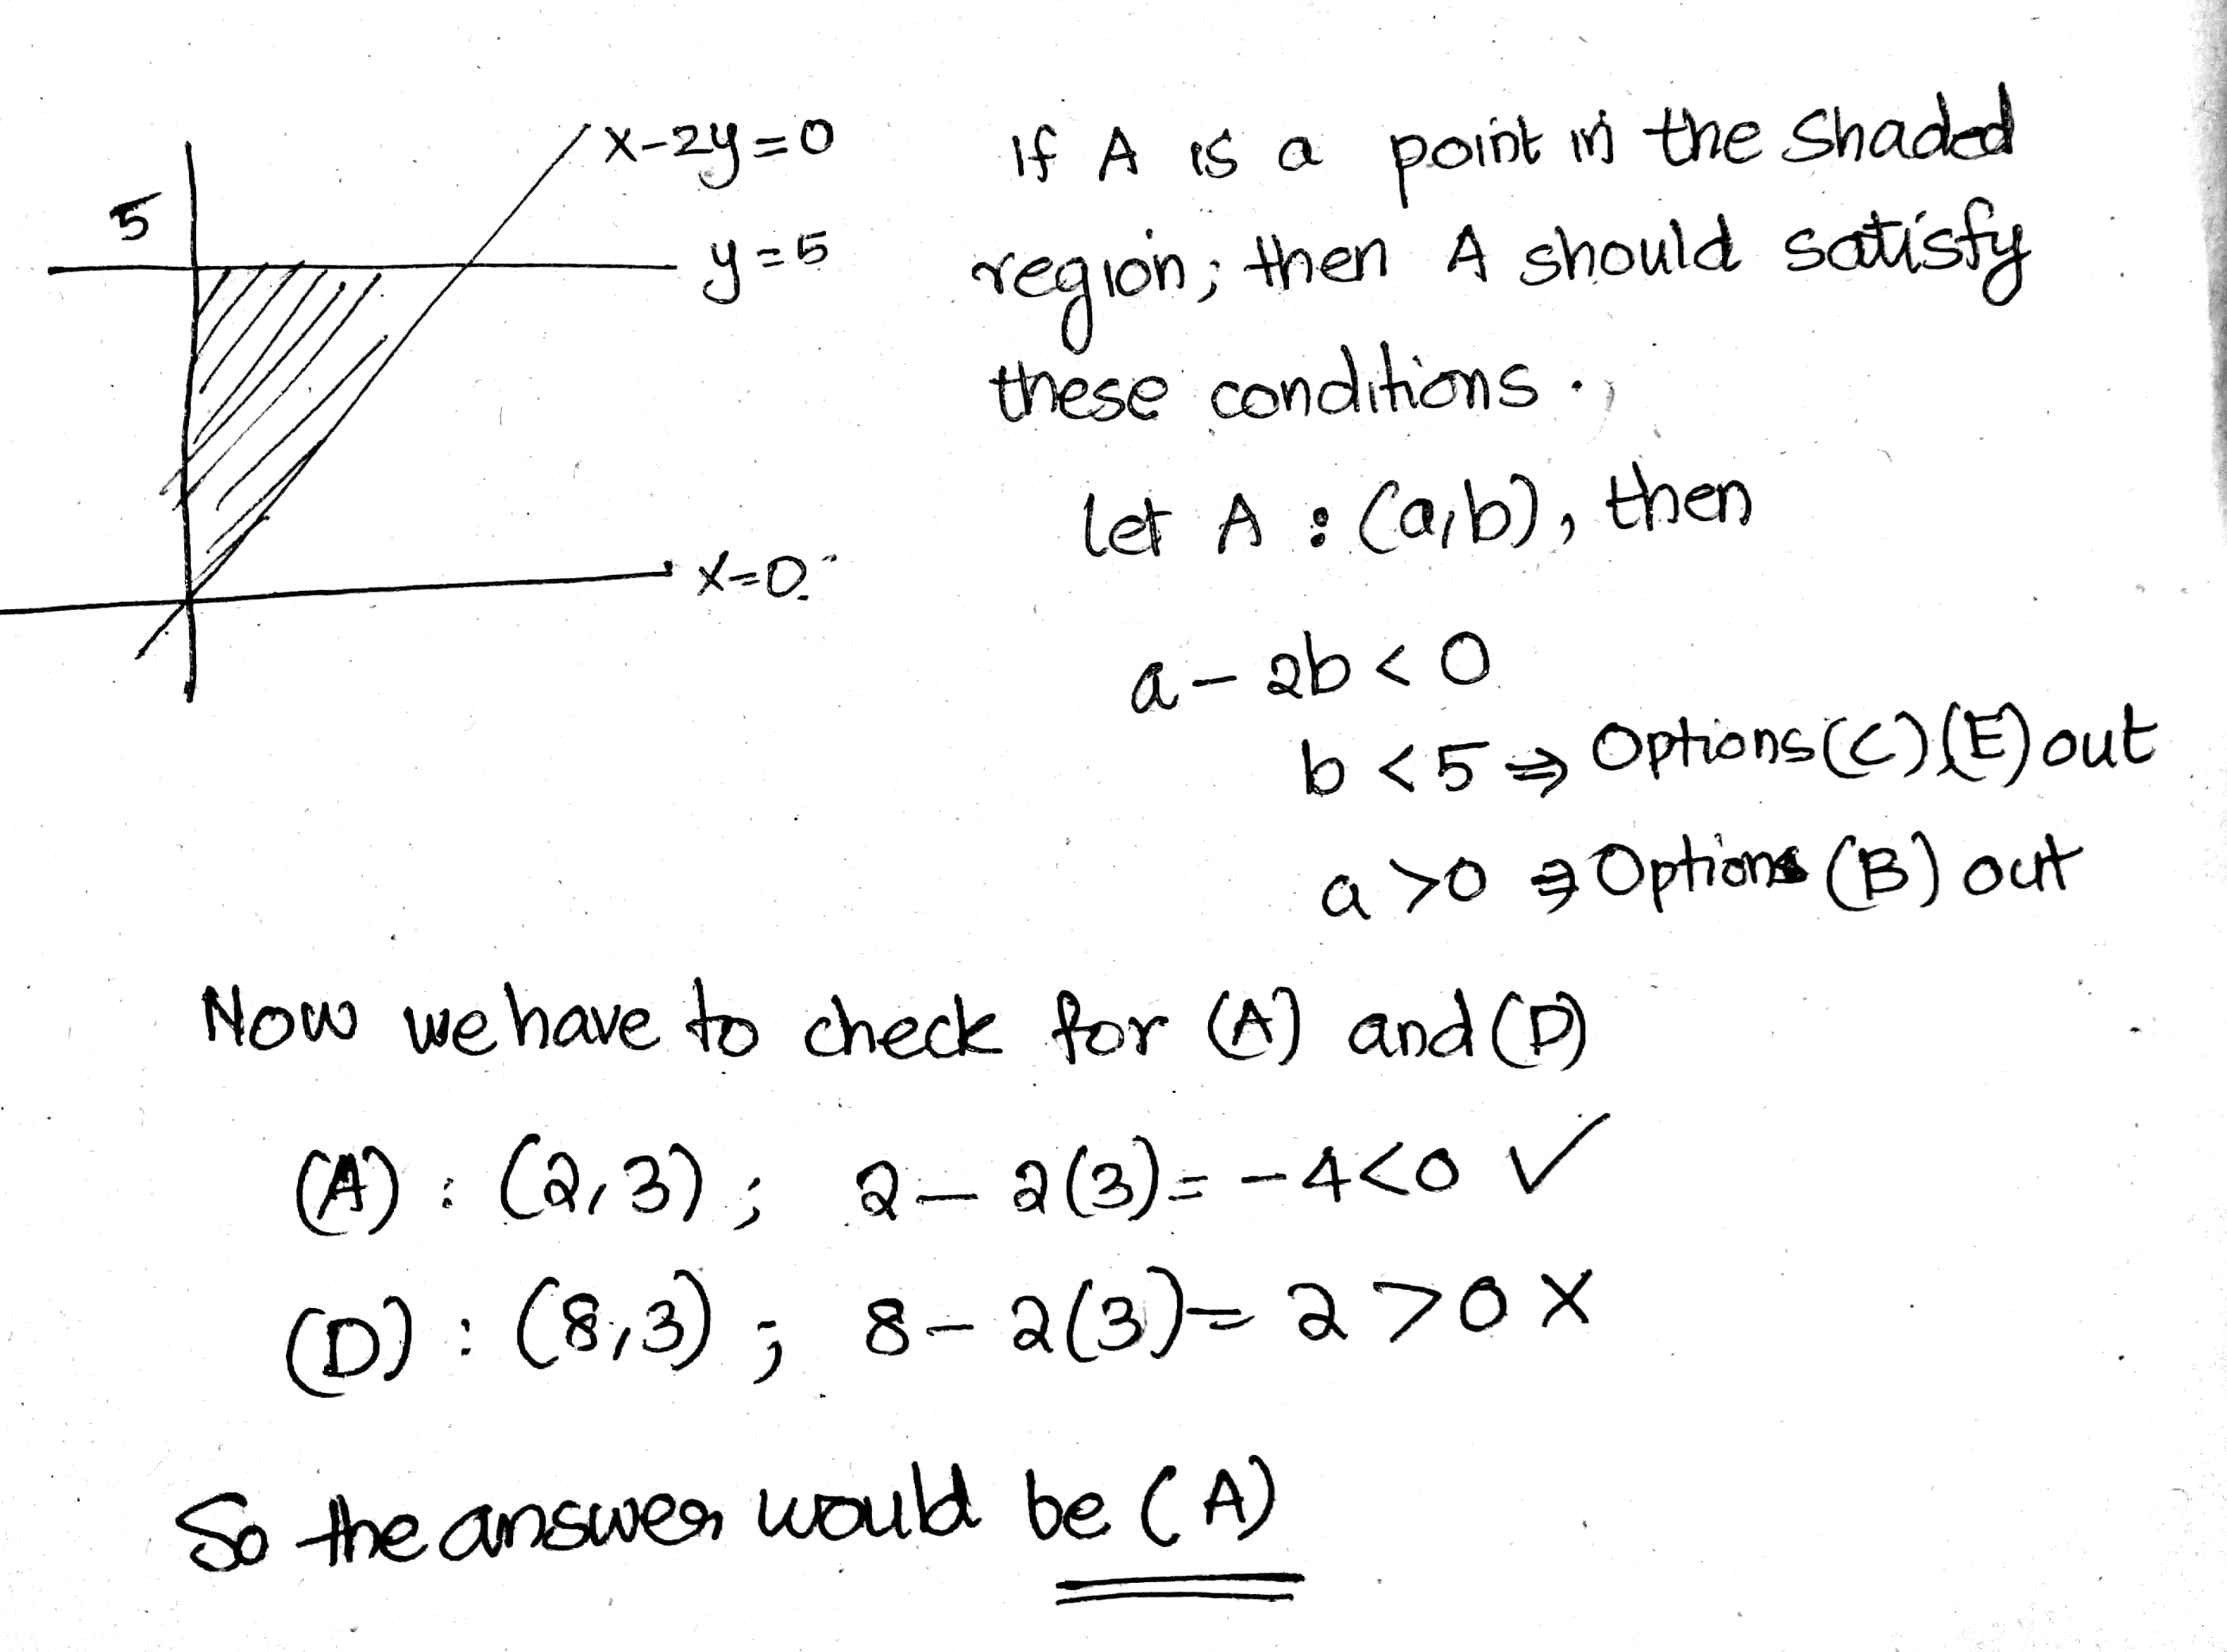 x-2y=0
5
y=5
x=0
If A is a point in the shaded
region; then A should satisfy
these conditions.
let A : (a,b), then
a - 2b < 0
b < 5 ⇒ Options (C) (E) out
a > 0 ⇒ Options (B) out
Now we have to check for (A) and (D)
(A) : (2,3) ; 2 - 2(3) = -4 < 0 ✓
(D) : (8,3) ; 8 - 2(3) = 2 > 0 X
So the answer would be (A)